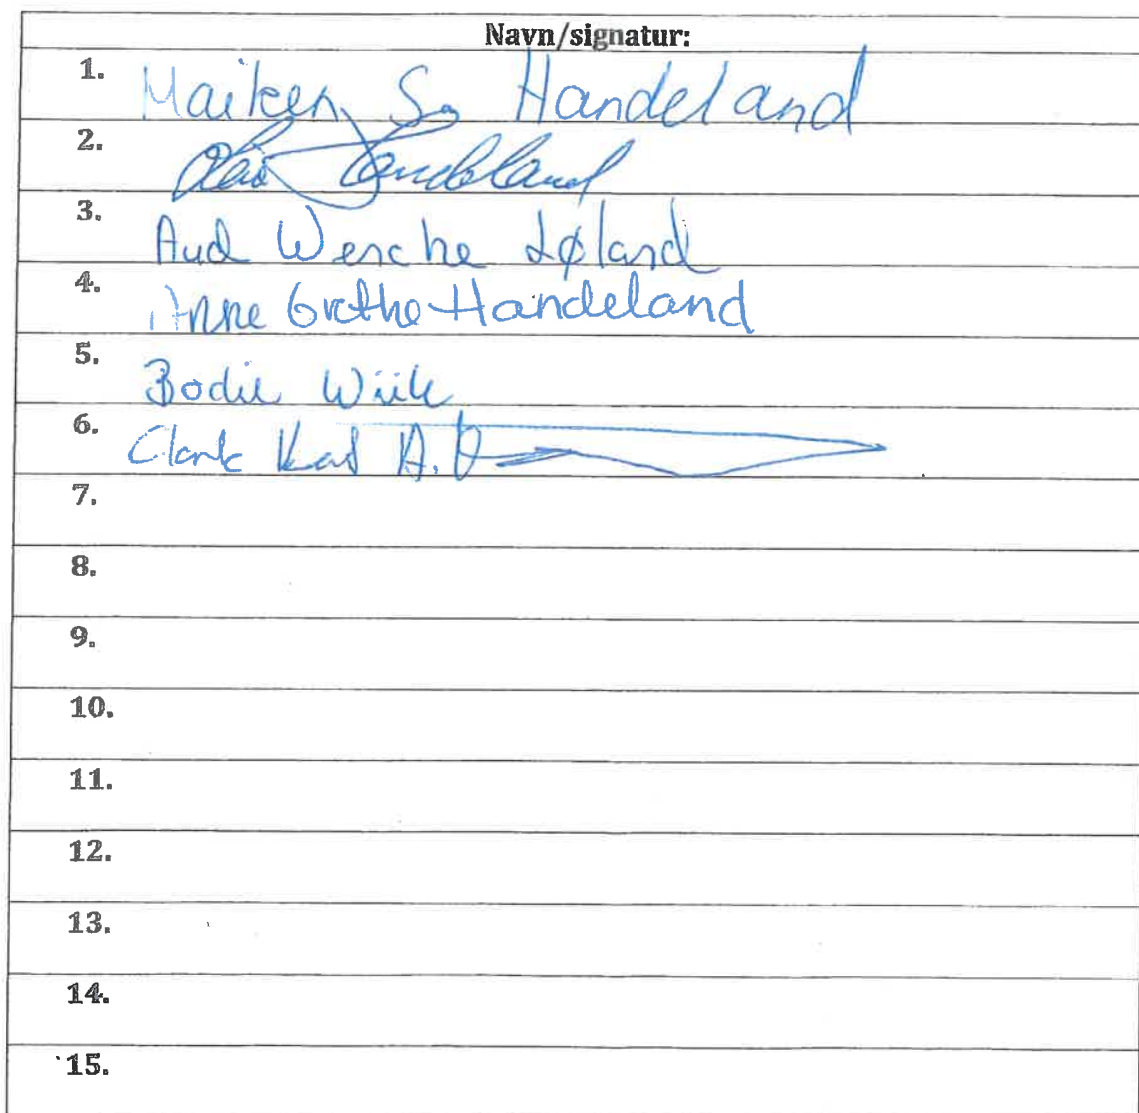 Navn/signatur:
1. Maiken S. Handeland
2. Handeland
3. Aud Wenche Løland
4. Anne Grethe Handeland
5. Bodil Wiik
6.
7.
8.
9.
10.
11.
12.
13.
14.
15.